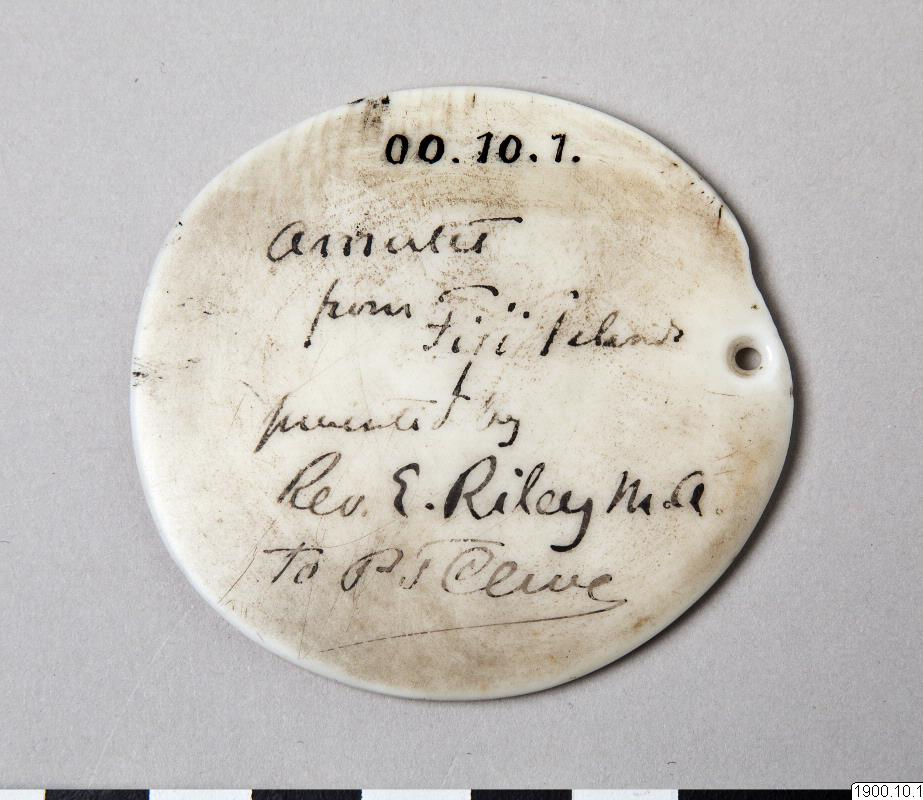 00.10.1.
Amulet
from Fiji Islands
presented by
Rev. E. Riley M.A.
to P T Cleve
1900.10.1